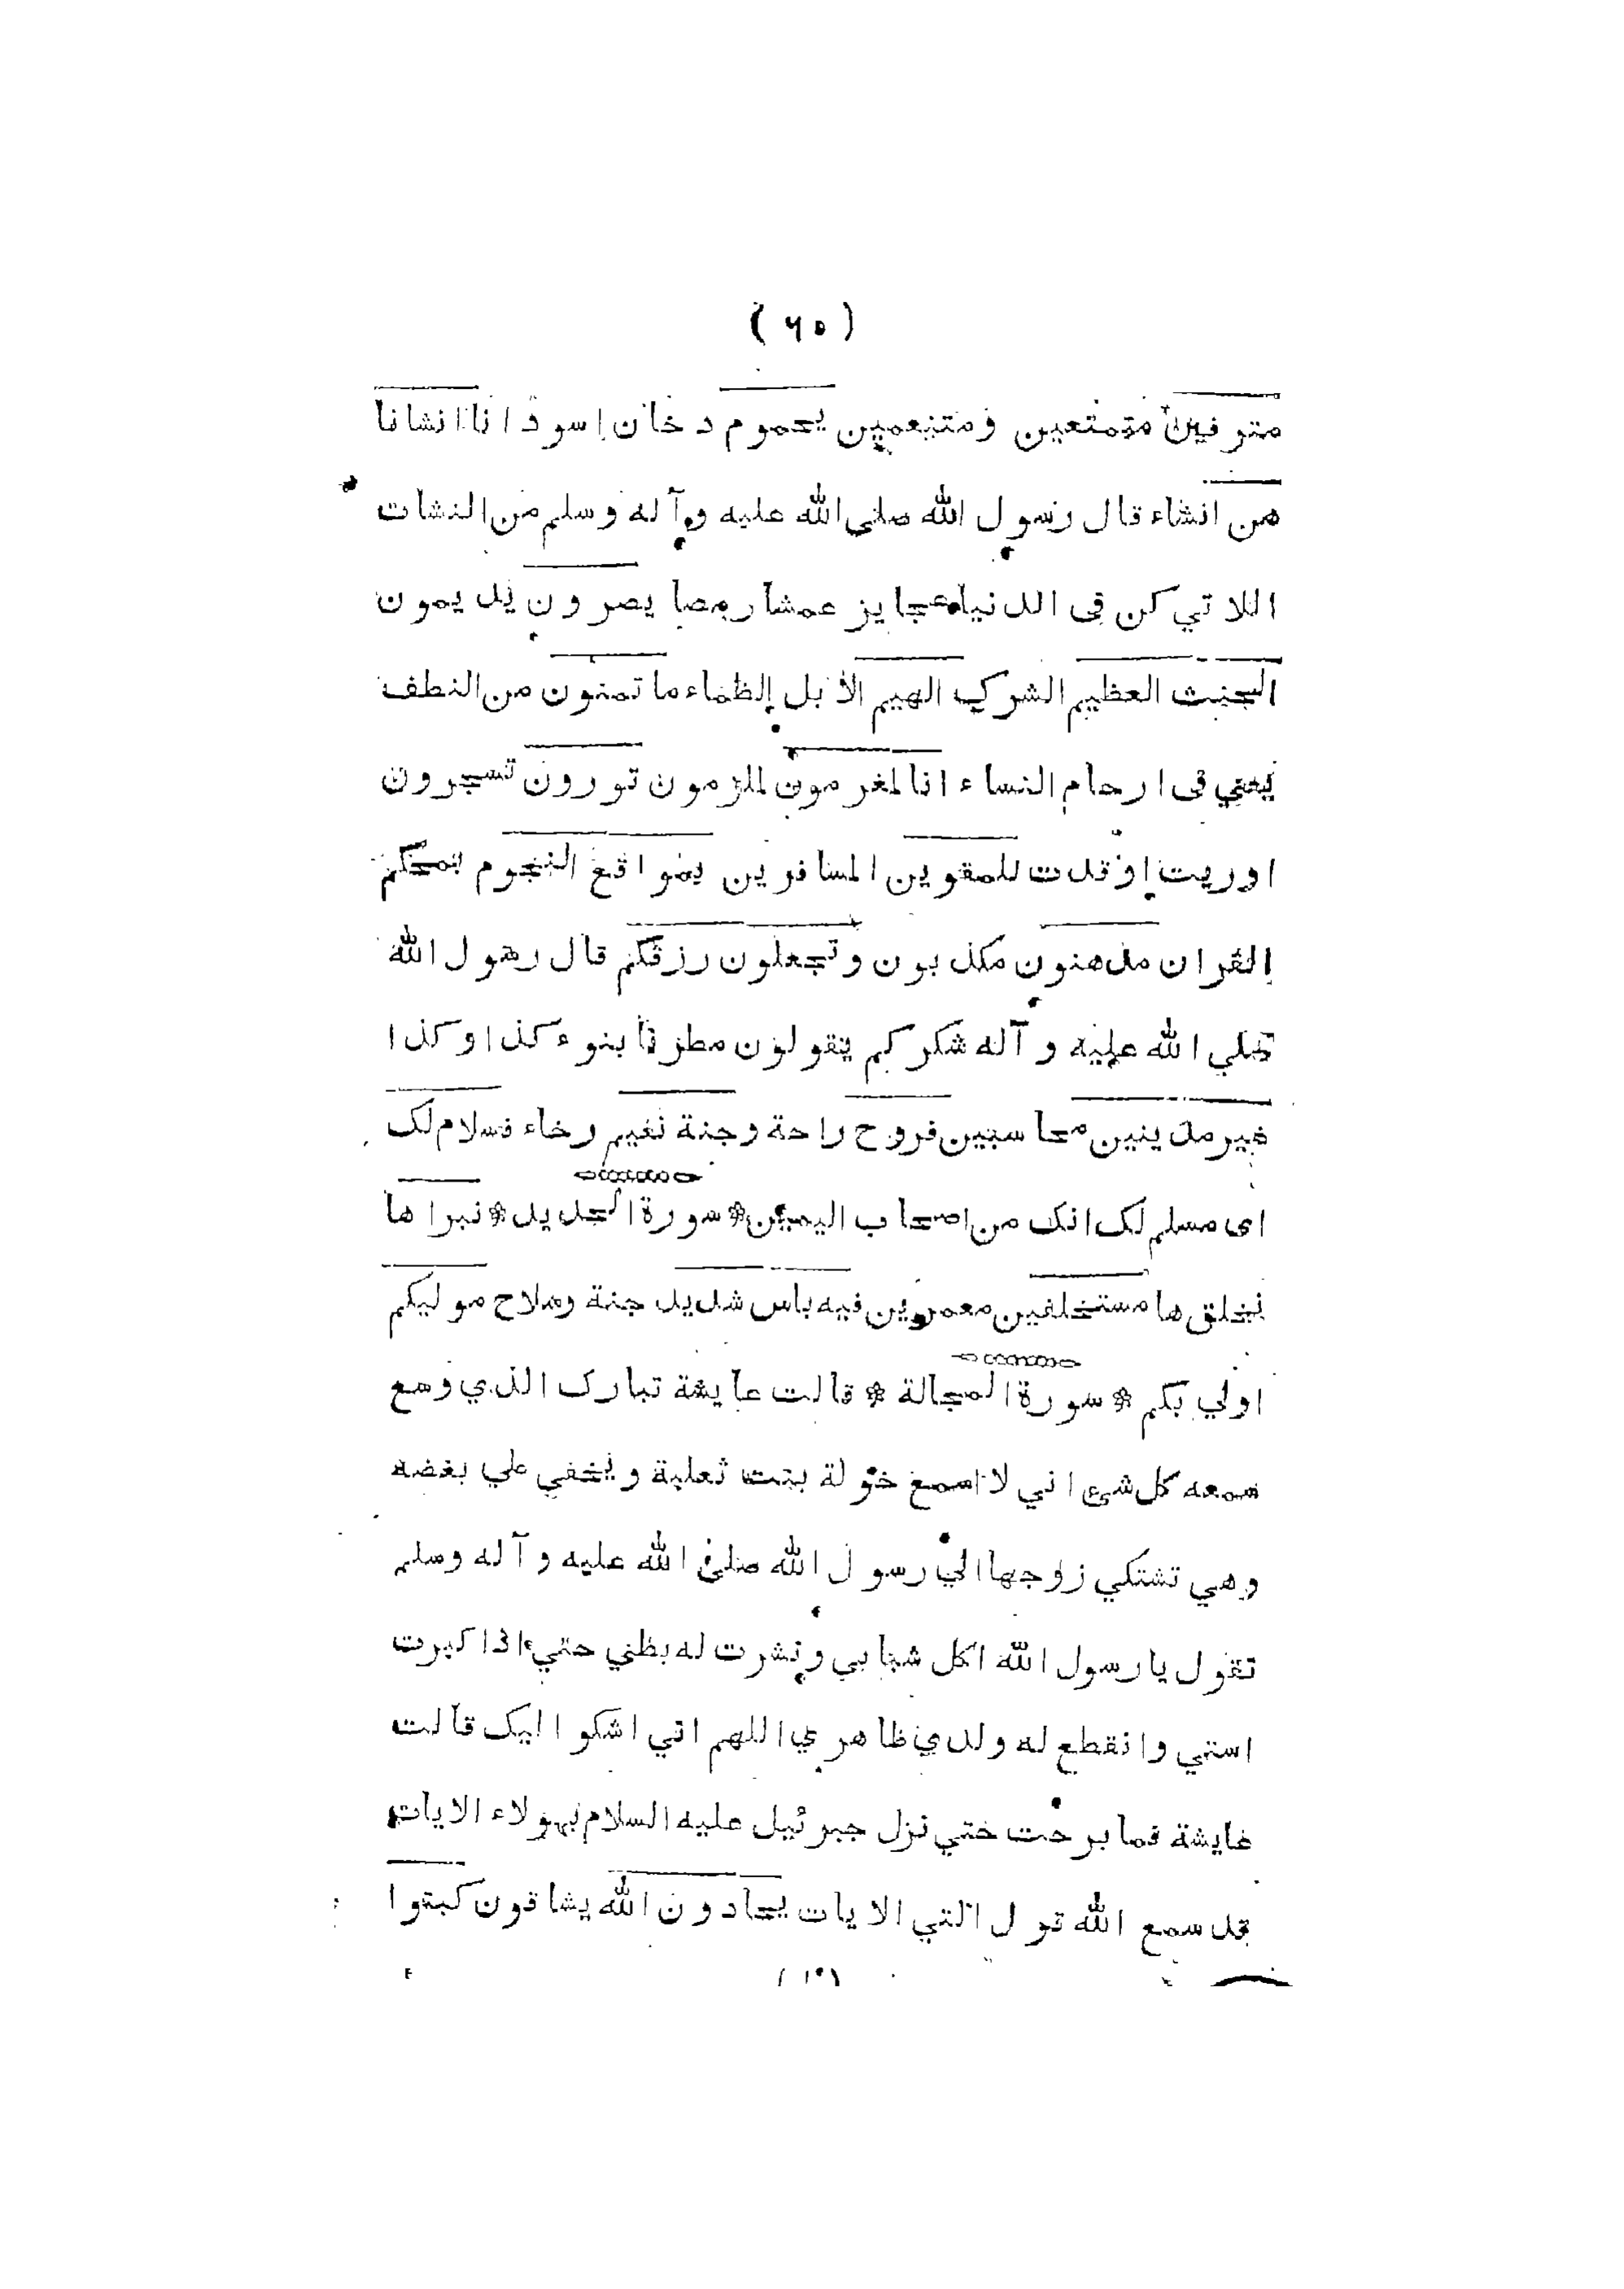 ( ٦٥ )
مترفين متمتعين ومتنعمين يحموم دخان اسود انا انشانا
هن انشاء قال رسول الله صلى الله عليه وآله وسلم من النشات
اللاتي كن فى الدنيا عجايز عمشا رمصا يصرون يديمون
الحنث العظيم الشرك الهيم الابل الظماء ما تمنون من النطف
يعني فى ارحام النساء انا لمغرمون لملزمون تورون تسجرون
اوريت اوقدت للمقوين المسافرين بمواقع النجوم بمحكم
القران مدهنون مكذبون وتجعلون رزقكم قال رسول الله
صلي الله عليه وآله شكركم يقولون مطرنا بنوء كذا وكذا
غير مدينين محاسبين فروح راحة وجنة نعيم رخاء فسلام لک
اى مسلم لک انک من اصحاب اليمين * سورة الحديد * نبراها
نخلقها مستخلفين معمرين فيه باس شديد جنة وسلاح موليكم
اولي بكم * سورة المجالة * قالت عايشة تبارک الذي وسع
سمعه كل شئ اني لا اسمع خولة بنت ثعلبة ويخفي علي بعضه
وهي تشتكي زوجها الي رسول الله صلى الله عليه وآله وسلم
تقول يا رسول الله اكل شبابي ونشرت له بطني حتي اذا كبرت
استي وانقطع له ولدي ظاهري اللهم اني اشكوا اليک قالت
عايشة فما برحت حتي نزل جبرئيل عليه السلام بهولاء الايات
قد سمع الله قول التي الايات يحادون الله يشاقون كبتوا